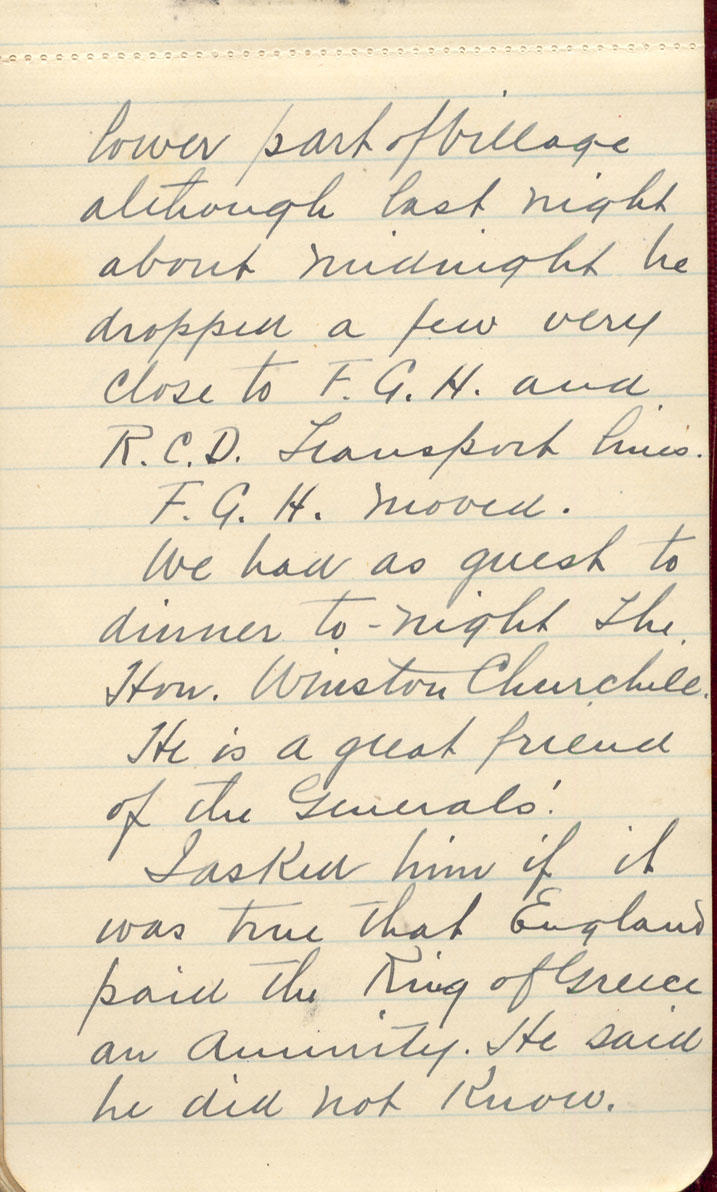 lower part of village
although last night
about midnight he
dropped a few very
close to F.G.H. and
R.C.D. Transport lines.
F.G.H. moved.
We had as guest to
dinner to-night The
Hon. Winston Churchill.
He is a great friend
of the Generals'.
I asked him if it
was true that England
paid the King of Greece
an annuity. He said
he did not know.